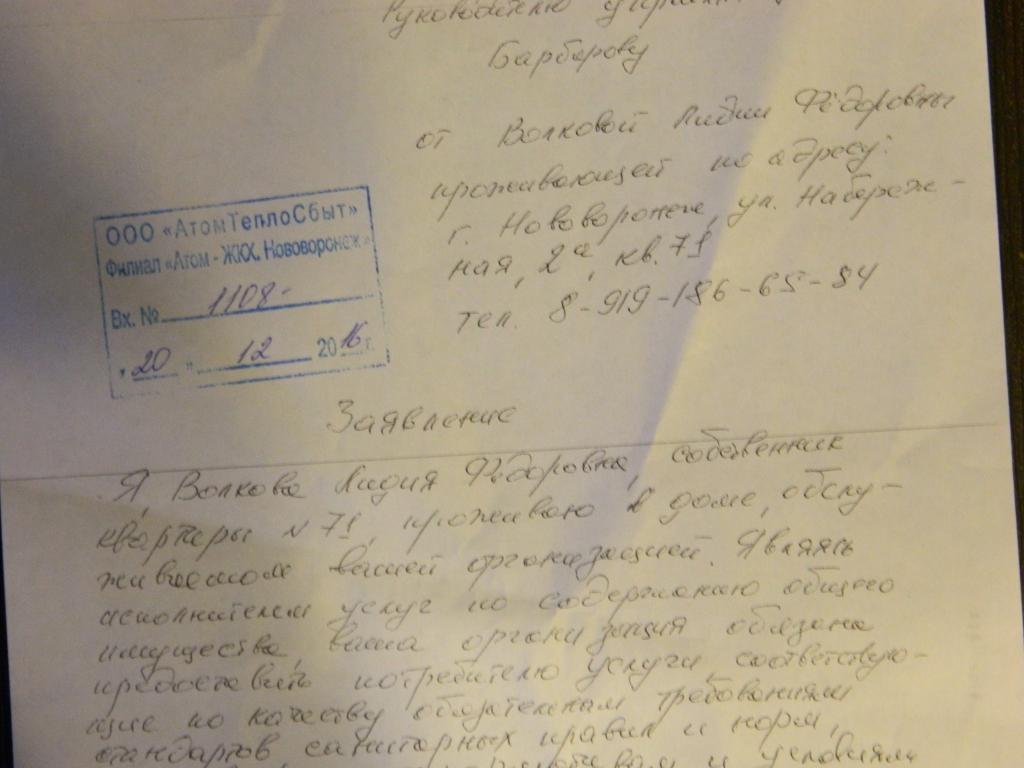 Руководителю
Барберову
от Волковой Лидии Фёдоровны
проживающей по адресу:
г. Нововоронеж, ул. Набереж-
ная, 2а, кв. 71
тел. 8-919-186-65-84
ООО «АтомТеплоСбыт»
Филиал «Атом - ЖКХ. Нововоронеж»
Вх. № 1108-
"20" 12 2016 г.
Заявление
Я, Волкова Лидия Фёдоровна, собственник
квартиры № 71, проживаю в доме, обслу-
живаемом вашей организацией. Являясь
исполнителем услуг по содержанию общего
имущества, ваша организация обязана
предоставить потребителю услуги, соответствую-
щие по качеству обязательным требованиям
стандартов, санитарных правил и норм,
и условиям